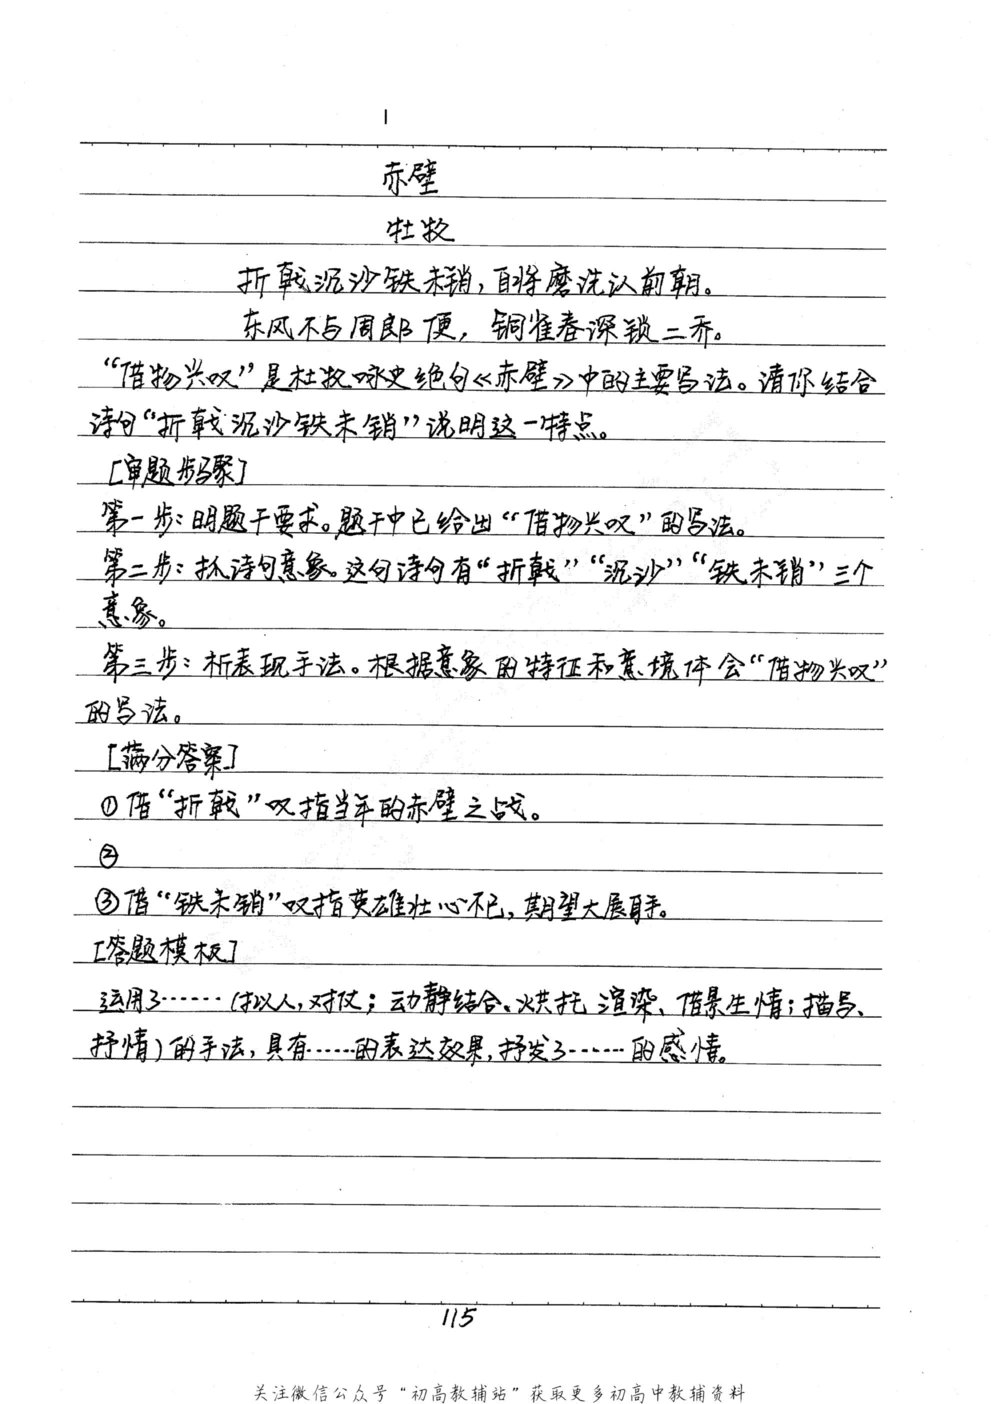 1
赤壁
杜牧
折戟沉沙铁未销，自将磨洗认前朝。
东风不与周郎便，铜雀春深锁二乔。
“借物兴叹”是杜牧咏史绝句《赤壁》中的主要写法。请你结合
诗句“折戟沉沙铁未销”说明这一特点。
[审题步骤]
第一步：明题干要求。题干中已给出“借物兴叹”的写法。
第二步：抓诗句意象。这句诗句有“折戟”“沉沙”“铁未销”三个
意象。
第三步：析表现手法。根据意象的特征和意境体会“借物兴叹”
的写法。
[满分答案]
①借“折戟”叹指当年的赤壁之战。
②
③借“铁未销”叹指英雄壮心不已，期望大展身手。
[答题模板]
运用了……（拟人，对仗；动静结合、烘托、渲染、借景生情；描写、
抒情）的手法，具有……的表达效果，抒发了……的感情。
115
关注微信公众号“初高教辅站”获取更多初高中教辅资料